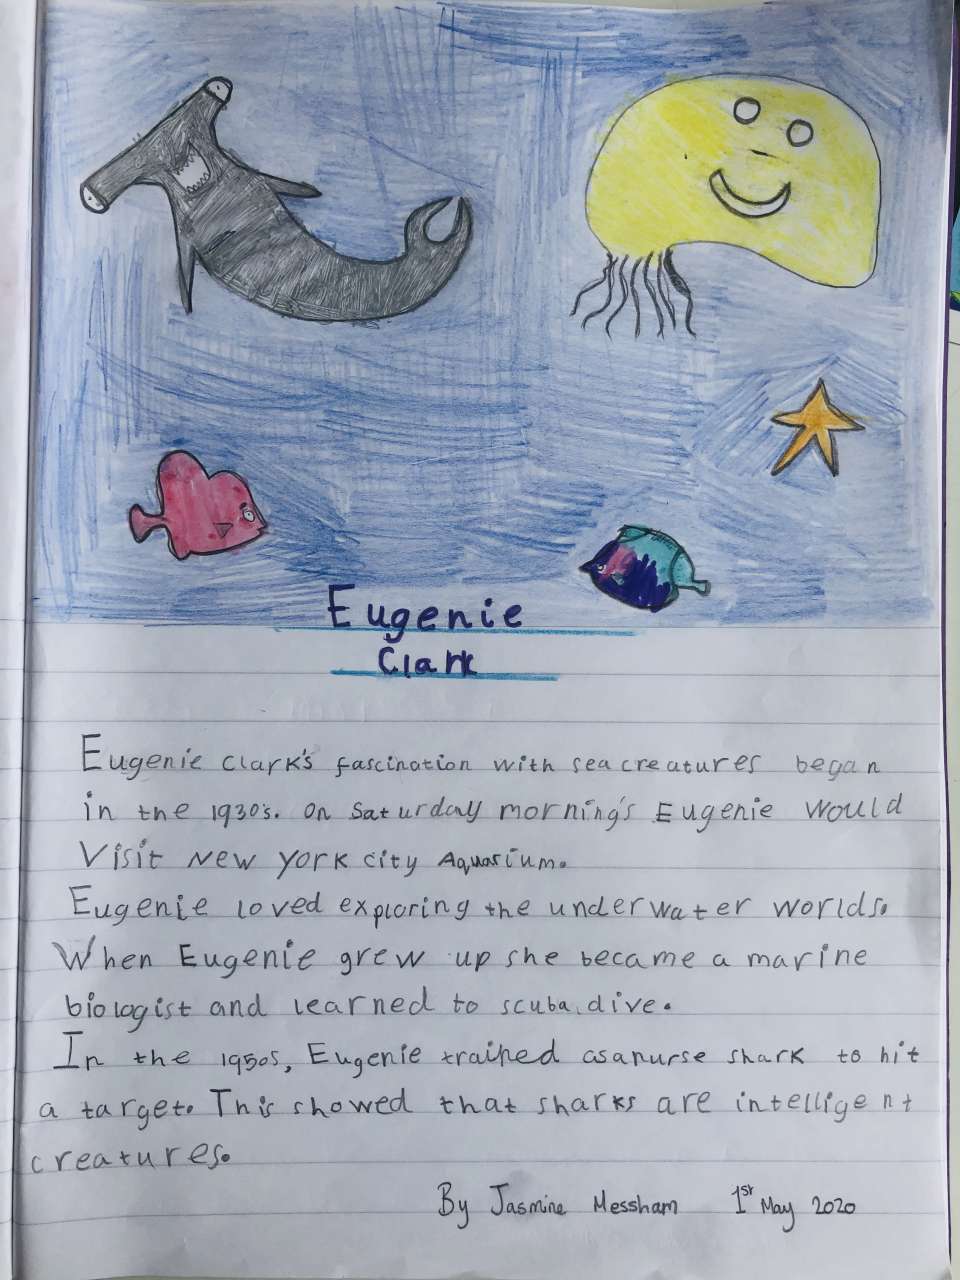 Eugenie
Clark
Eugenie Clark's fascination with sea creatures began
in the 1930's. On Saturday morning's Eugenie would
Visit New York city Aquarium.
Eugenie loved exploring the underwater worlds.
When Eugenie grew up she became a marine
biologist and learned to scuba dive.
In the 1950s, Eugenie trained asanurse shark to hit
a target. This showed that sharks are intelligent
creatures.
By Jasmine Messham 1st May 2020